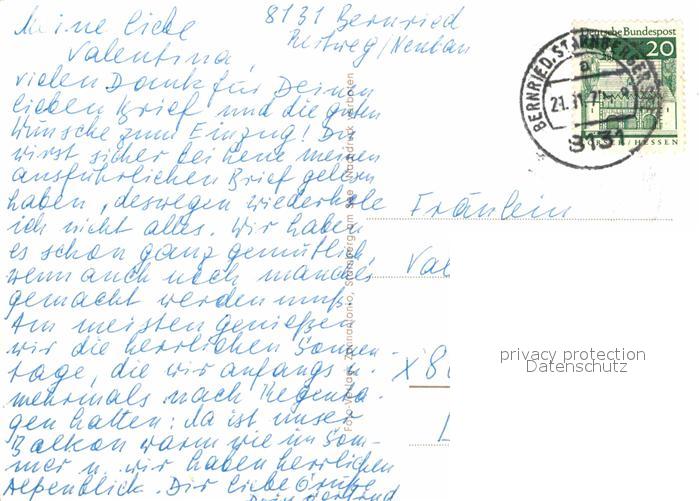 Meine liebe
Valentina,
8131 Bernried
Reitweg/Neubau
vielen Dank für Deinen
lieben Brief und die guten
Wünsche zum Einzug! Du
wirst sicher bei Lene meinen
ausführlichen Brief gelesen
haben, deswegen wiederhole
ich nicht alles. Wir haben
es schon ganz gemütlich,
wenn auch noch manches
gemacht werden muß.
Am meisten genießen
wir die herrlichen Sonnen-
tage, die wir anfangs u.
mehrmals nach Regenta-
gen hatten: da ist unser
Balkon warm wie im Som-
mer u. wir haben herrlichen
Alpenblick. Dir liebe Grüße
Fräulein
Val
X 8
L
Deutsche Bundespost
20
LORSCH/HESSEN
BERNRIED, STARNBERGER
a
21.11.7
8131
privacy protection
Datenschutz